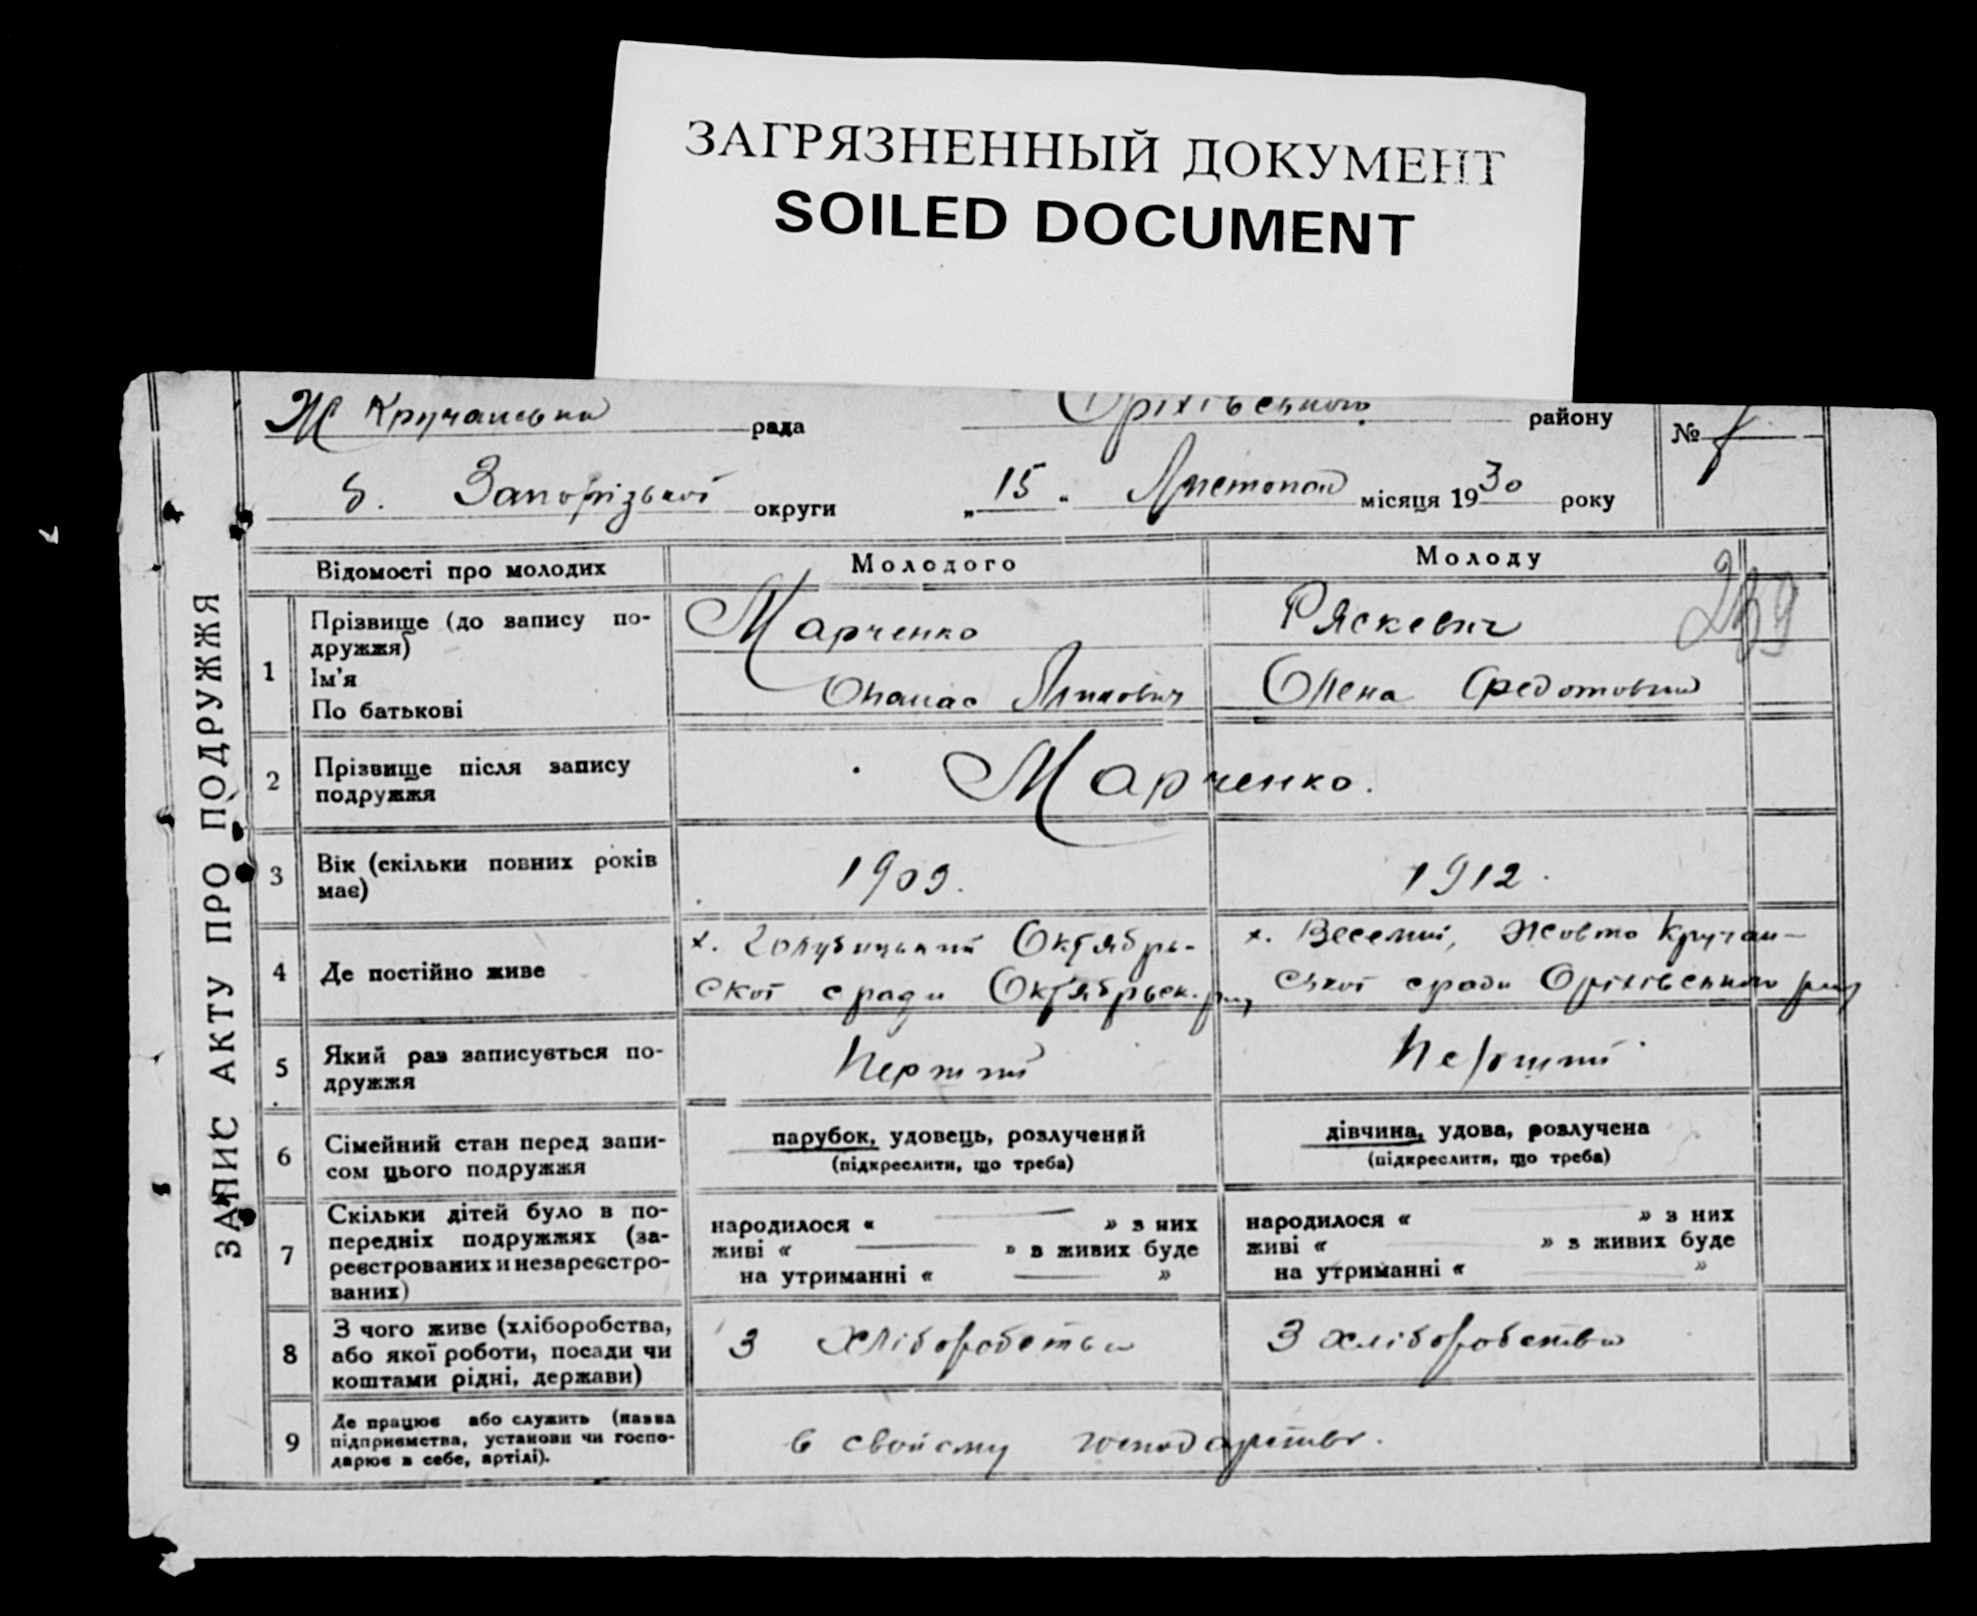 ЗАГРЯЗНЕННЫЙ ДОКУМЕНТ
SOILED DOCUMENT
Ж Кручанська рада Оріхівського району №
б. Запорізької округи „15" Листопад місяця 1930 року
ЗАПИС АКТУ ПРО ПОДРУЖЖЯ
Відомості про молодих Молодого Молоду
239
1 Прізвище (до запису по-
дружжя)
Ім'я
По батькові
Марченко Ряскевич
Опанас Олена Федотовна
2 Прізвище після запису
подружжя
Марченко.
3 Вік (скільки повних років
має)
1909. 1912.
4 Де постійно живе
х. Голубицький Октябрь-
ской сради Октябрьск. р-ну
х. Веселий, Жовто Кручан-
ської сради Оріхівського р-ну
5 Який раз записується по-
дружжя
Перший Перший
6 Сімейний стан перед запи-
сом цього подружжя
парубок, удовець, розлучений
(підкреслити, що треба)
дівчина, удова, розлучена
(підкреслити, що треба)
7 Скільки дітей було в по-
передніх подружжях (за-
реєстрованих и незареєстро-
ваних)
народилося « — » з них
живі « — » в живих буде
на утриманні « — »
народилося « — » з них
живі « — » з живих буде
на утриманні « — »
8 З чого живе (хліборобства,
або якої роботи, посади чи
коштами рідні, держави)
З хліборобства З хліборобства
9 Де працює або служить (назва
підприємства, установи чи госпо-
дарює в себе, артілі).
в своїому господарстві.